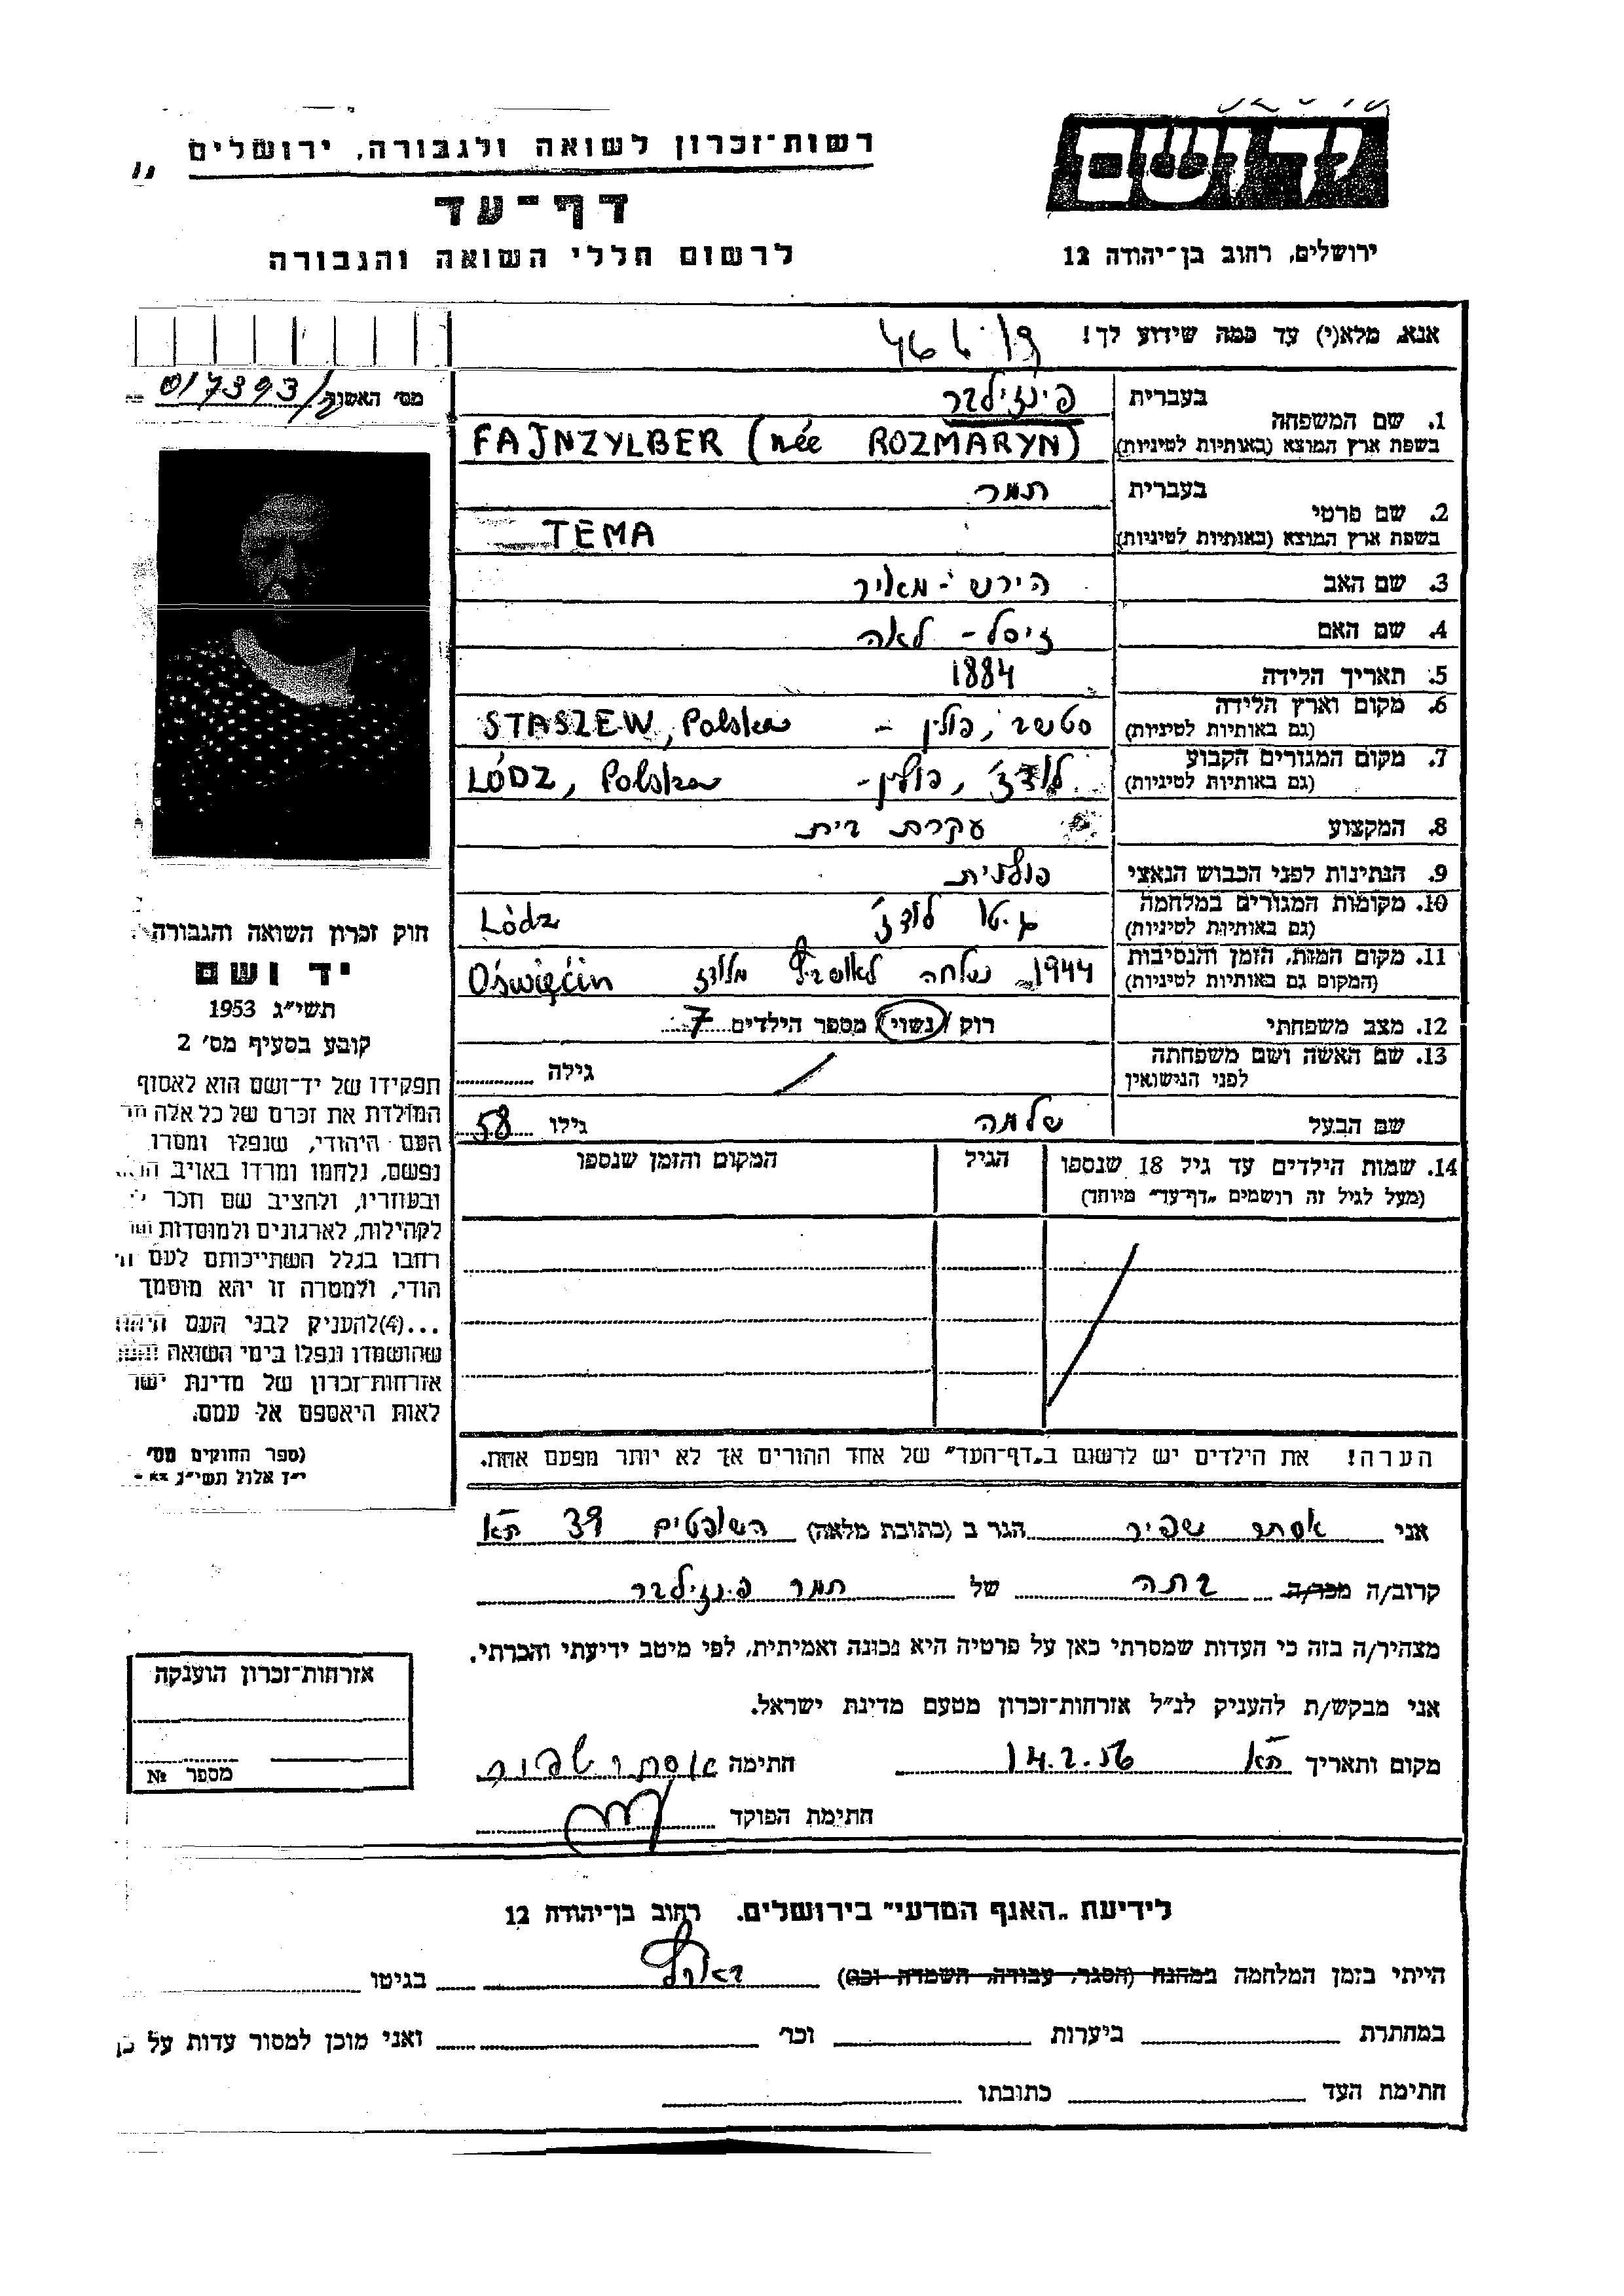 רשות־זכרון לשואה ולגבורה, ירושלים
יד ושם
דף־עד
לרשום חללי השואה והגבורה
ירושלים, רחוב בן־יהודה 12
אנא, מלא(י) עד כמה שידוע לך!
מס' האשור 017393/
1. שם המשפחה בעברית פינזילבר
בשפת ארץ המוצא (באותיות לטיניות) FAJNZYLBER (née ROZMARYN)
2. שם פרטי בעברית תמר
בשפת ארץ המוצא (באותיות לטיניות) TEMA
3. שם האב הירש - מאיר
4. שם האם זיסל - לאה
5. תאריך הלידה 1884
6. מקום וארץ הלידה (גם באותיות לטיניות) סטשב, פולין - STASZEW, Polska
7. מקום המגורים הקבוע (גם באותיות לטיניות) לודז', פולין - LÓDZ, Polska
8. המקצוע עקרת בית
9. הנתינות לפני הכבוש הנאצי פולנית
10. מקומות המגורים במלחמה (גם באותיות לטיניות) גיטו לודז' Lódz
11. מקום המות, הזמן והנסיבות (המקום גם באותיות לטיניות) 1944 נשלחה לאושביץ מלודז Oświęcin
12. מצב משפחתי רוק / נשוי / מספר הילדים 7
13. שם האשה ושם משפחתה לפני הנישואין גילה
שם הבעל שלמה גילו 58
14. שמות הילדים עד גיל 18 שנספו
(מעל לגיל זה רושמים "דף־עד" מיוחד)
הגיל
המקום והזמן שנספו
הערה! את הילדים יש לרשום ב"דף־העד" של אחד ההורים אך לא יותר מפעם אחת.
חוק זכרון השואה והגבורה
יד ושם
תשי"ג 1953
קובע בסעיף מס' 2
תפקידו של יד־ושם הוא לאסוף
המולדת את זכרם של כל אלה
העם היהודי, שנפלו ומסרו
נפשם, נלחמו ומרדו באויב
ובעוזריו, ולהציב שם וזכר
לקהילות, לארגונים ולמוסדות
חרבו בגלל השתייכותם לעם
הודי, ולמטרה זו יהא מוסמך
...(4) להעניק לבני העם
שהושמדו ונפלו בימי השואה
אזרחות־זכרון של מדינת
לאות היאספם אל עמם.
(ספר החוקים מס'
י"ז אלול תשי"ג
אני אסתר שפיר הגר ב (כתובת מלאה) השופטים 39 ת"א
קרוב/ה מכר/ה בתה של תמר פינזילבר
מצהיר/ה בזה כי העדות שמסרתי כאן על פרטיה היא נכונה ואמיתית, לפי מיטב ידיעתי והכרתי.
אני מבקש/ת להעניק לנ"ל אזרחות־זכרון מטעם מדינת ישראל.
מקום ותאריך ת"א 14.2.56 חתימה אסתר שפיר
חתימת הפוקד
אזרחות־זכרון הוענקה
מספר №
לידיעת "האגף המדעי" בירושלים. רחוב בן־יהודה 12
הייתי בזמן המלחמה במחנה (הסגר, עבודה, השמדה וכו) בארץ בגיטו
במחתרת ביערות וכו' ואני מוכן למסור עדות על
חתימת העד כתובתו